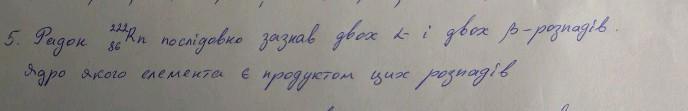 5. Радон ²²²₈₆Rn послідовно зазнав двох α і двох β-розпадів.
Ядро якого елемента є продуктом цих розпадів